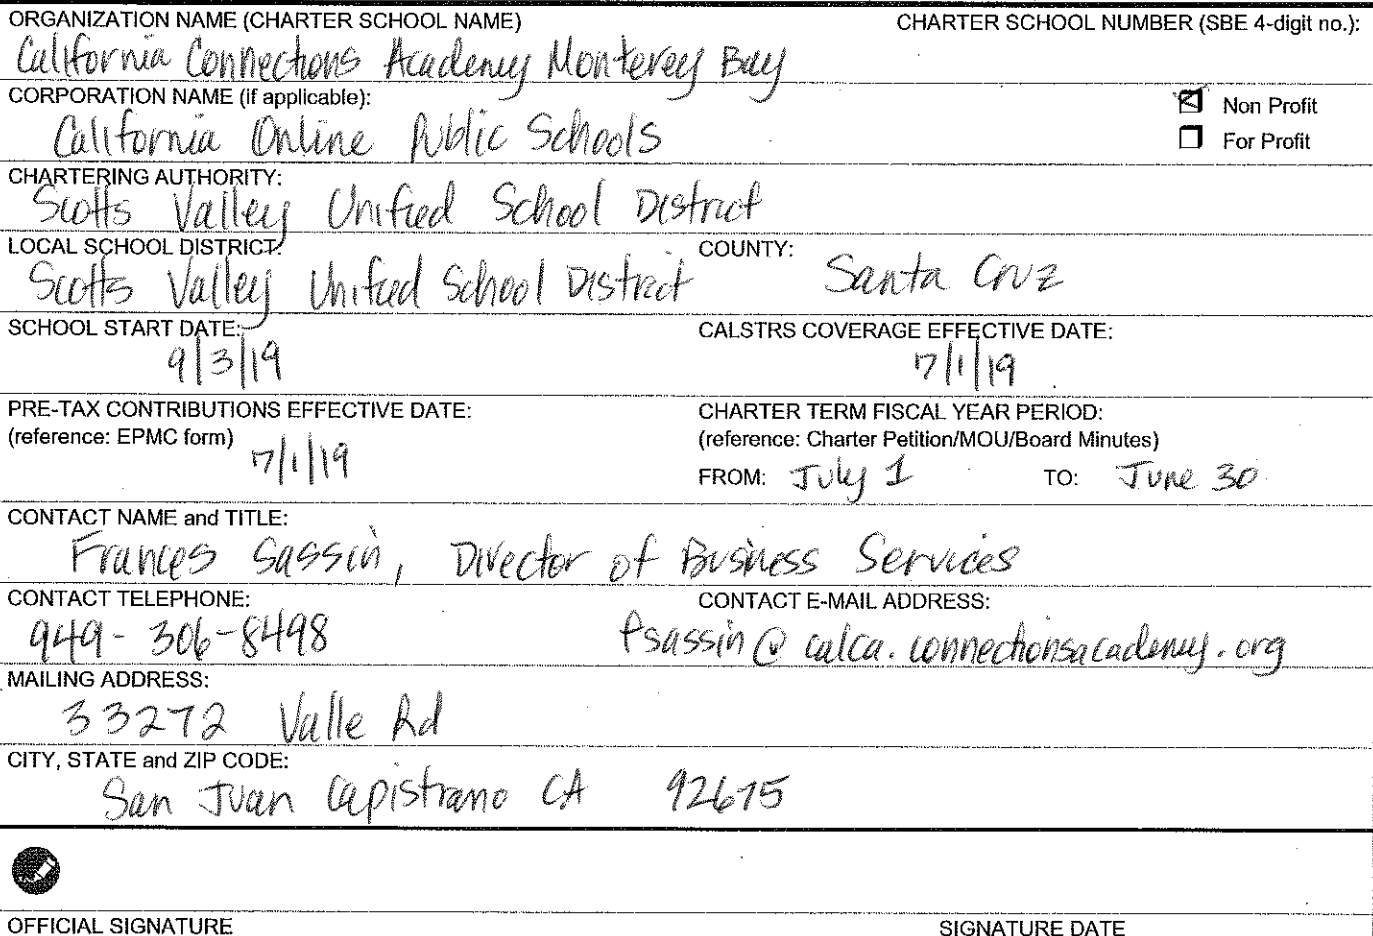 ORGANIZATION NAME (CHARTER SCHOOL NAME) CHARTER SCHOOL NUMBER (SBE 4-digit no.):
California Connections Academy Monterey Bay
CORPORATION NAME (if applicable):
Non Profit
California Online Public Schools
For Profit
CHARTERING AUTHORITY:
Scotts Valley Unified School District
LOCAL SCHOOL DISTRICT: COUNTY:
Scotts Valley Unified School District Santa Cruz
SCHOOL START DATE: CALSTRS COVERAGE EFFECTIVE DATE:
9/3/19 7/1/19
PRE-TAX CONTRIBUTIONS EFFECTIVE DATE: CHARTER TERM FISCAL YEAR PERIOD:
(reference: EPMC form) (reference: Charter Petition/MOU/Board Minutes)
7/1/19 FROM: July 1 TO: June 30
CONTACT NAME and TITLE:
Frances Sassin, Director of Business Services
CONTACT TELEPHONE: CONTACT E-MAIL ADDRESS:
949-306-8498 fsassin@calca.connectionsacademy.org
MAILING ADDRESS:
33272 Valle Rd
CITY, STATE and ZIP CODE:
San Juan Capistrano CA 92675
OFFICIAL SIGNATURE SIGNATURE DATE